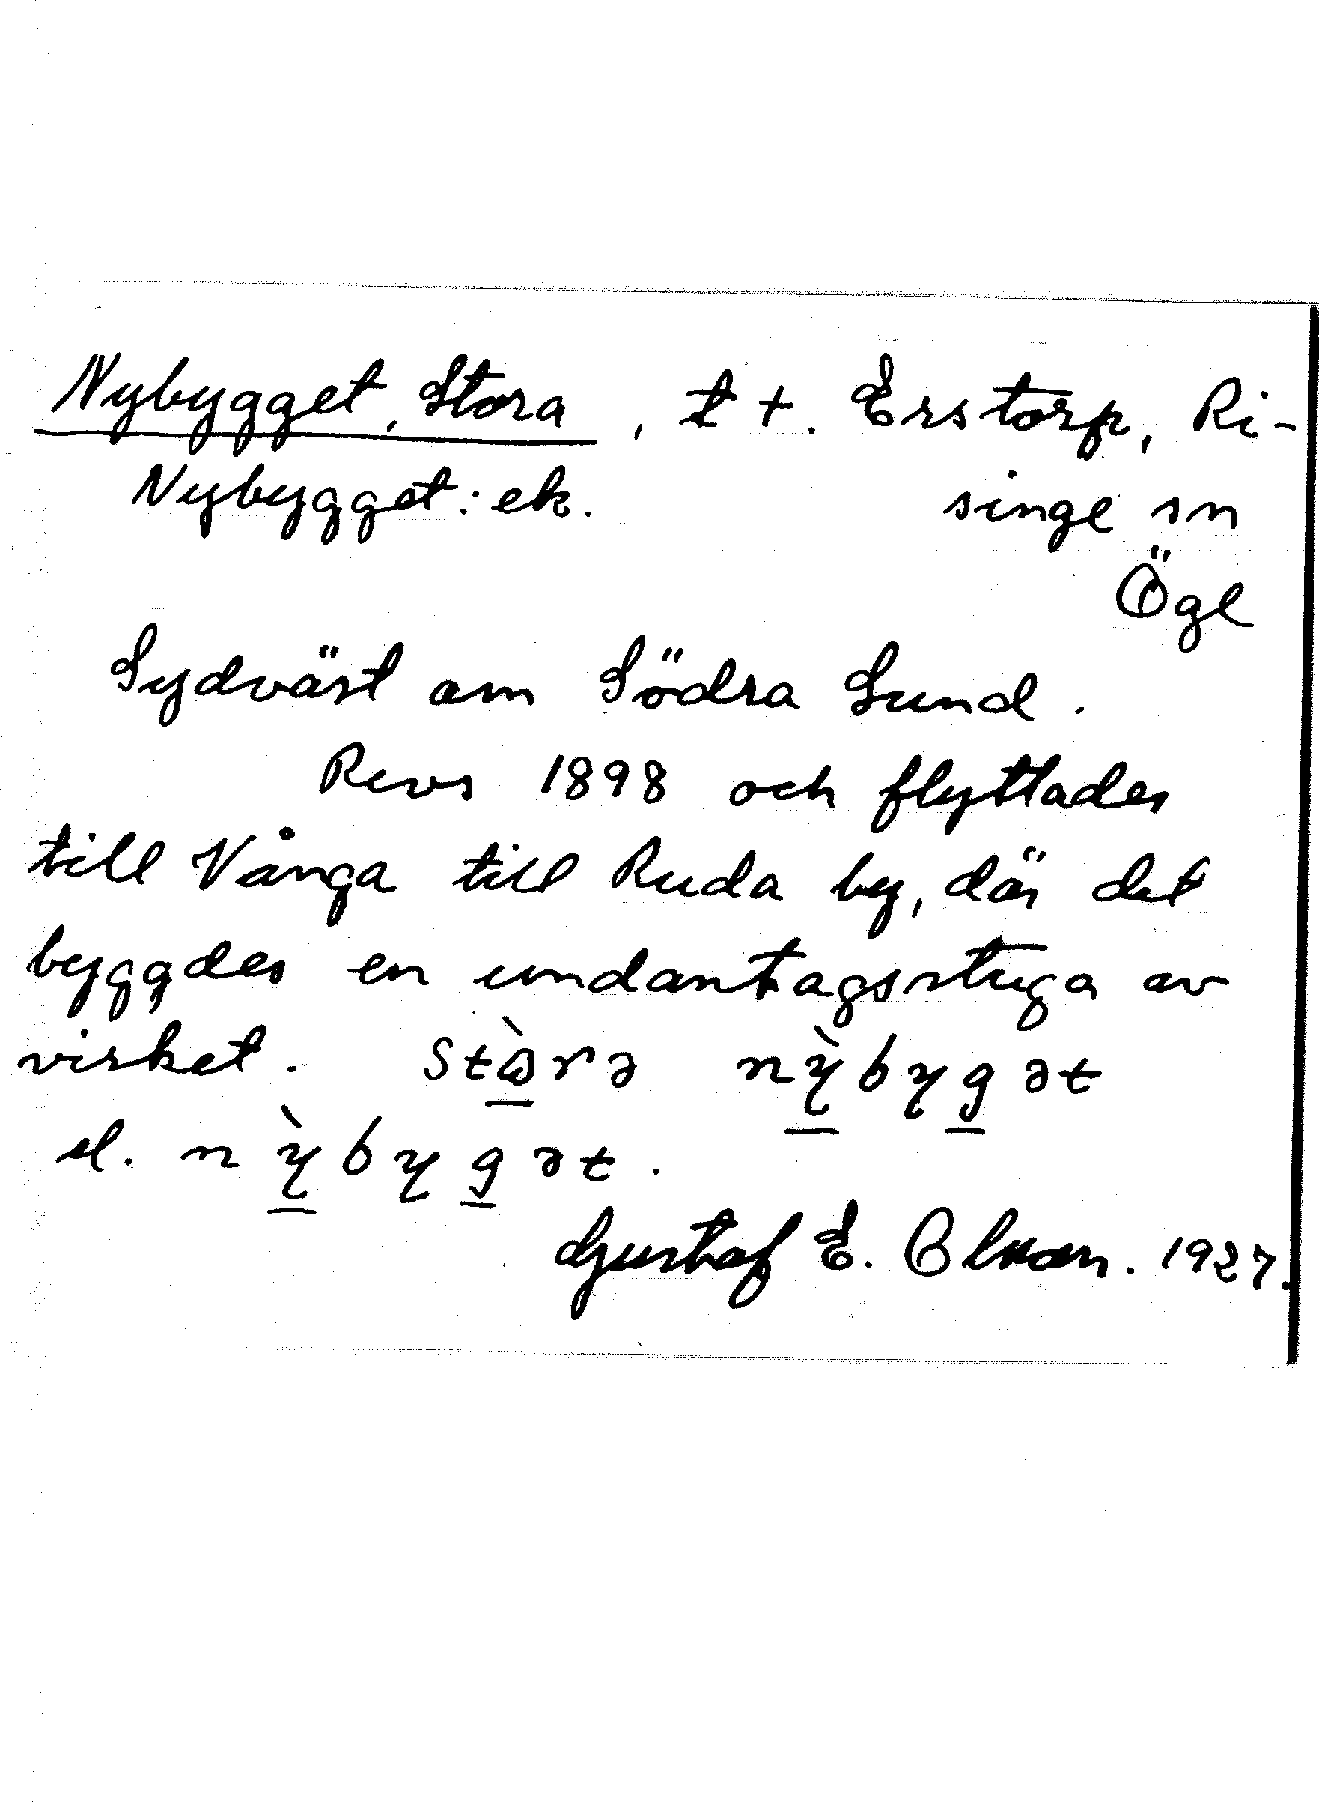 Nybygget, Stora, t +. Erstorp, Ri-
Nybygget: ek. singe sn
Ögl
Sydväst om Södra Sund.
Revs 1898 och flyttades
till Vånga till Ruda by, där det
byggdes en undantagsstuga av
virket. stɷ̀rə nỳbygət
el. nỳbygət.
Gustaf E. Olson. 1927.